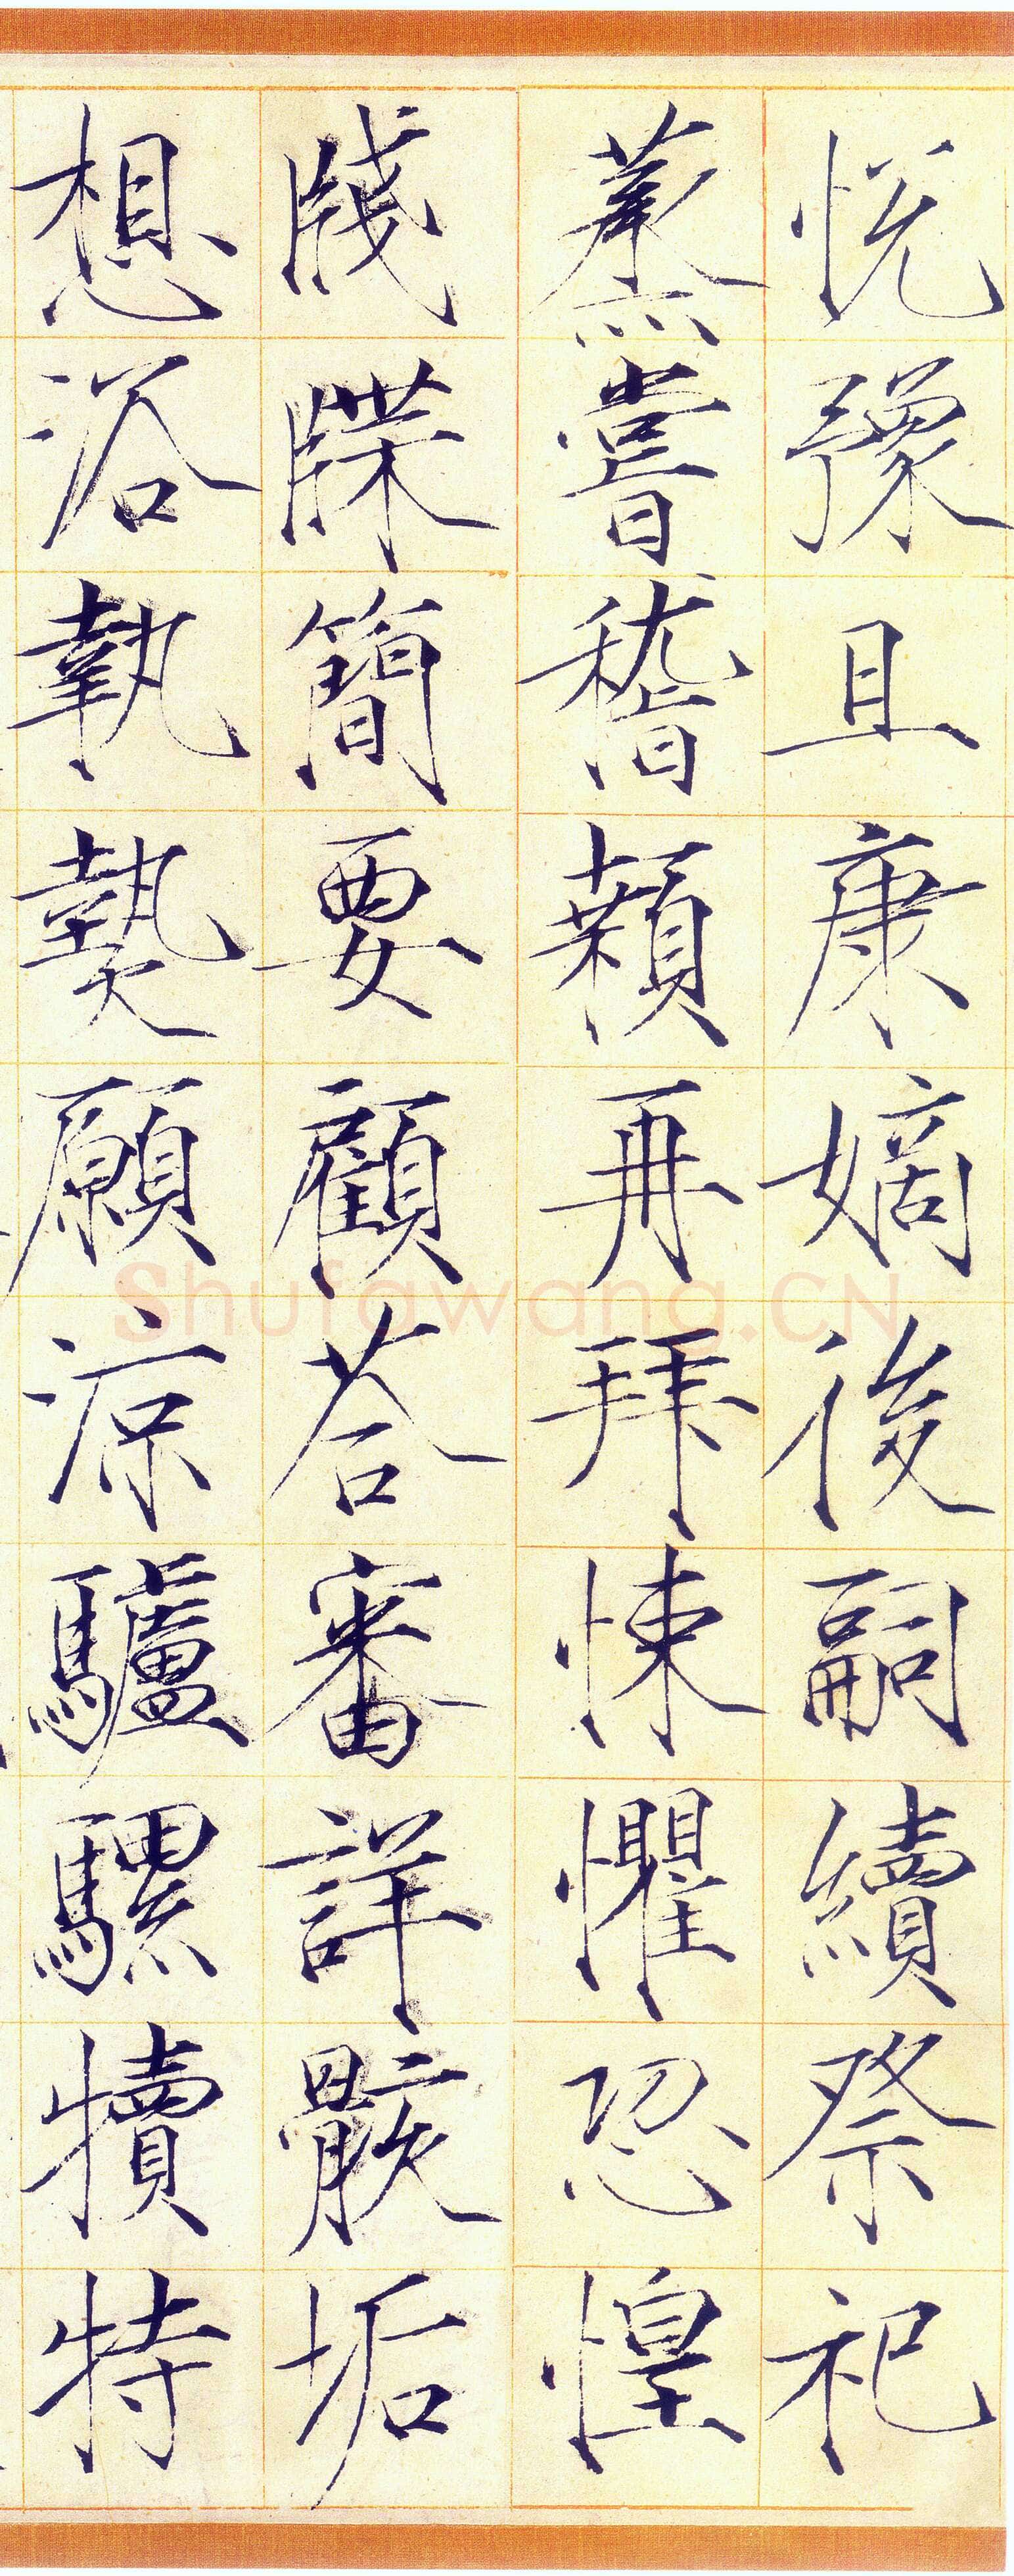 悅豫且康嫡後嗣續祭祀
蒸嘗稽顙再拜悚懼恐惶
牋牒簡要顧荅審詳骸垢
想浴執熱願涼驢騾犢特
Shufawang.CN